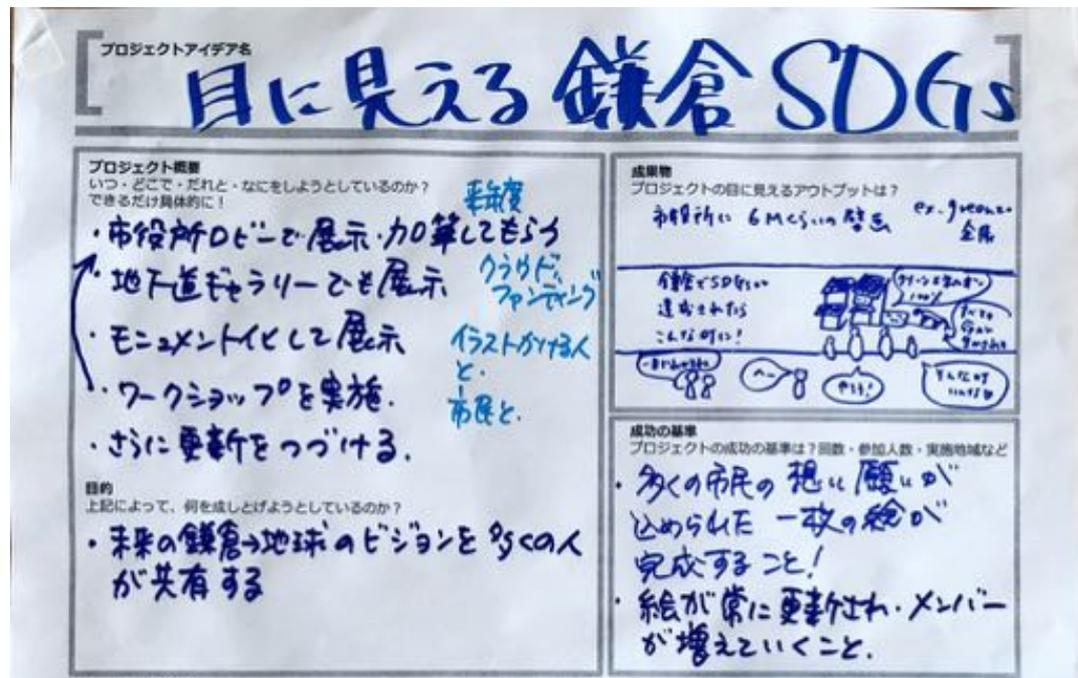 プロジェクトアイデア名
目に見える鎌倉SDGs
プロジェクト概要
いつ・どこで・だれと・なにをしようとしているのか?
できるだけ具体的に!
来年度
・市役所ロビーで展示・加筆してもらう
・地下道ギャラリーでも展示
クラウド
ファンディング
・モニュメント化として展示
イラストかける人
と、
市民と、
・ワークショップを実施.
・さらに更新をつづける.
目的
上記によって、何を成しとげようとしているのか?
・未来の鎌倉→地球のビジョンを多くの人
が共有する
成果物
プロジェクトの目に見えるアウトプットは?
市役所に 6Mくらいの壁画
ex.
鎌倉でSDGsが
達成されたら
こんな町に!
100%
へー
やろう!
成功の基準
プロジェクトの成功の基準は?回数・参加人数・実施地域など
・多くの市民の想い願いが
込められた 一枚の絵が
完成すること!
・絵が常に更新され・メンバー
が増えていくこと.